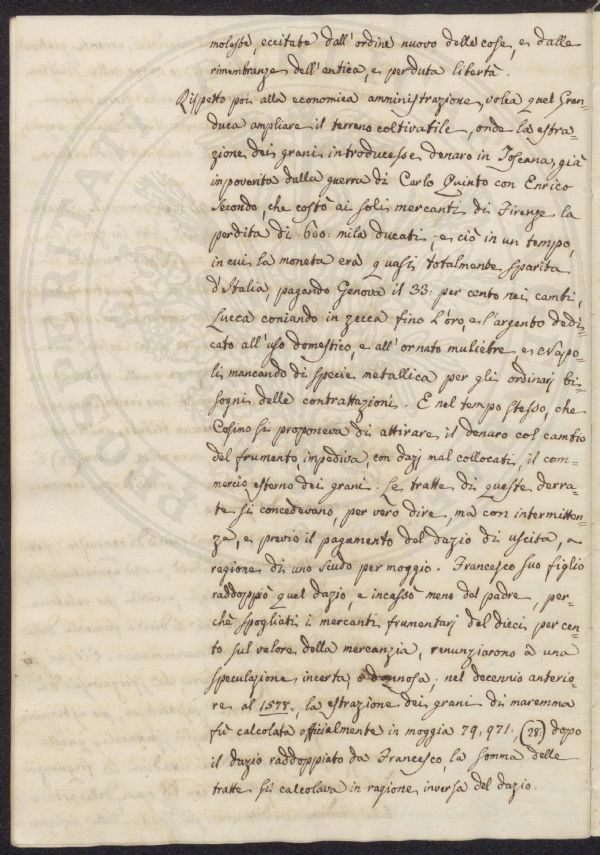 moleste, eccitate dall'ordine nuovo delle cose, e dalle
rimembranze dell'antica, e perduta libertà.
Rispetto poi alla economica amministrazione, volea quel Gran-
duca ampliare il terreno coltivabile, onde la estra-
zione dei grani introducesse denaro in Toscana, già
impoverita dalla guerra di Carlo Quinto con Enrico
Secondo, che costò ai soli mercanti di Firenze la
perdita di 600: mila ducati; e ciò in un tempo,
in cui la moneta era quasi totalmente sparita
d'Italia, pagando Genova il 33: per cento nei cambi,
Lucca coniando in zecca fino l'oro, e l'argento dedi-
cato all'uso domestico, e all'ornato muliebre e Napo-
li mancando di specie metallica per gli ordinarj bi-
sogni delle contrattazioni. E nel tempo stesso, che
Cosimo si proponeva di attirare il denaro col cambio
del frumento, impediva, con dazj mal collocati, il com-
mercio esterno dei grani. Le tratte di queste derra-
te si concedevano, per vero dire, ma con intermitten-
za, e previo il pagamento del dazio di uscita, a
ragione di uno scudo per moggio. Francesco suo figlio
raddoppiò quel dazio, e incassò meno del padre, per-
chè spogliati i mercanti frumentarj del dieci per cen-
to sul valore della mercanzia, renunziarono a una
speculazione incerta, o dannosa; nel decennio anterio-
re al 1578:, la estrazione dei grani di maremma
fù calcolata officialmente in moggia 79,971: (28:) dopo
il dazio raddoppiato da Francesco, la somma delle
tratte si calcolava in ragione inversa del dazio.